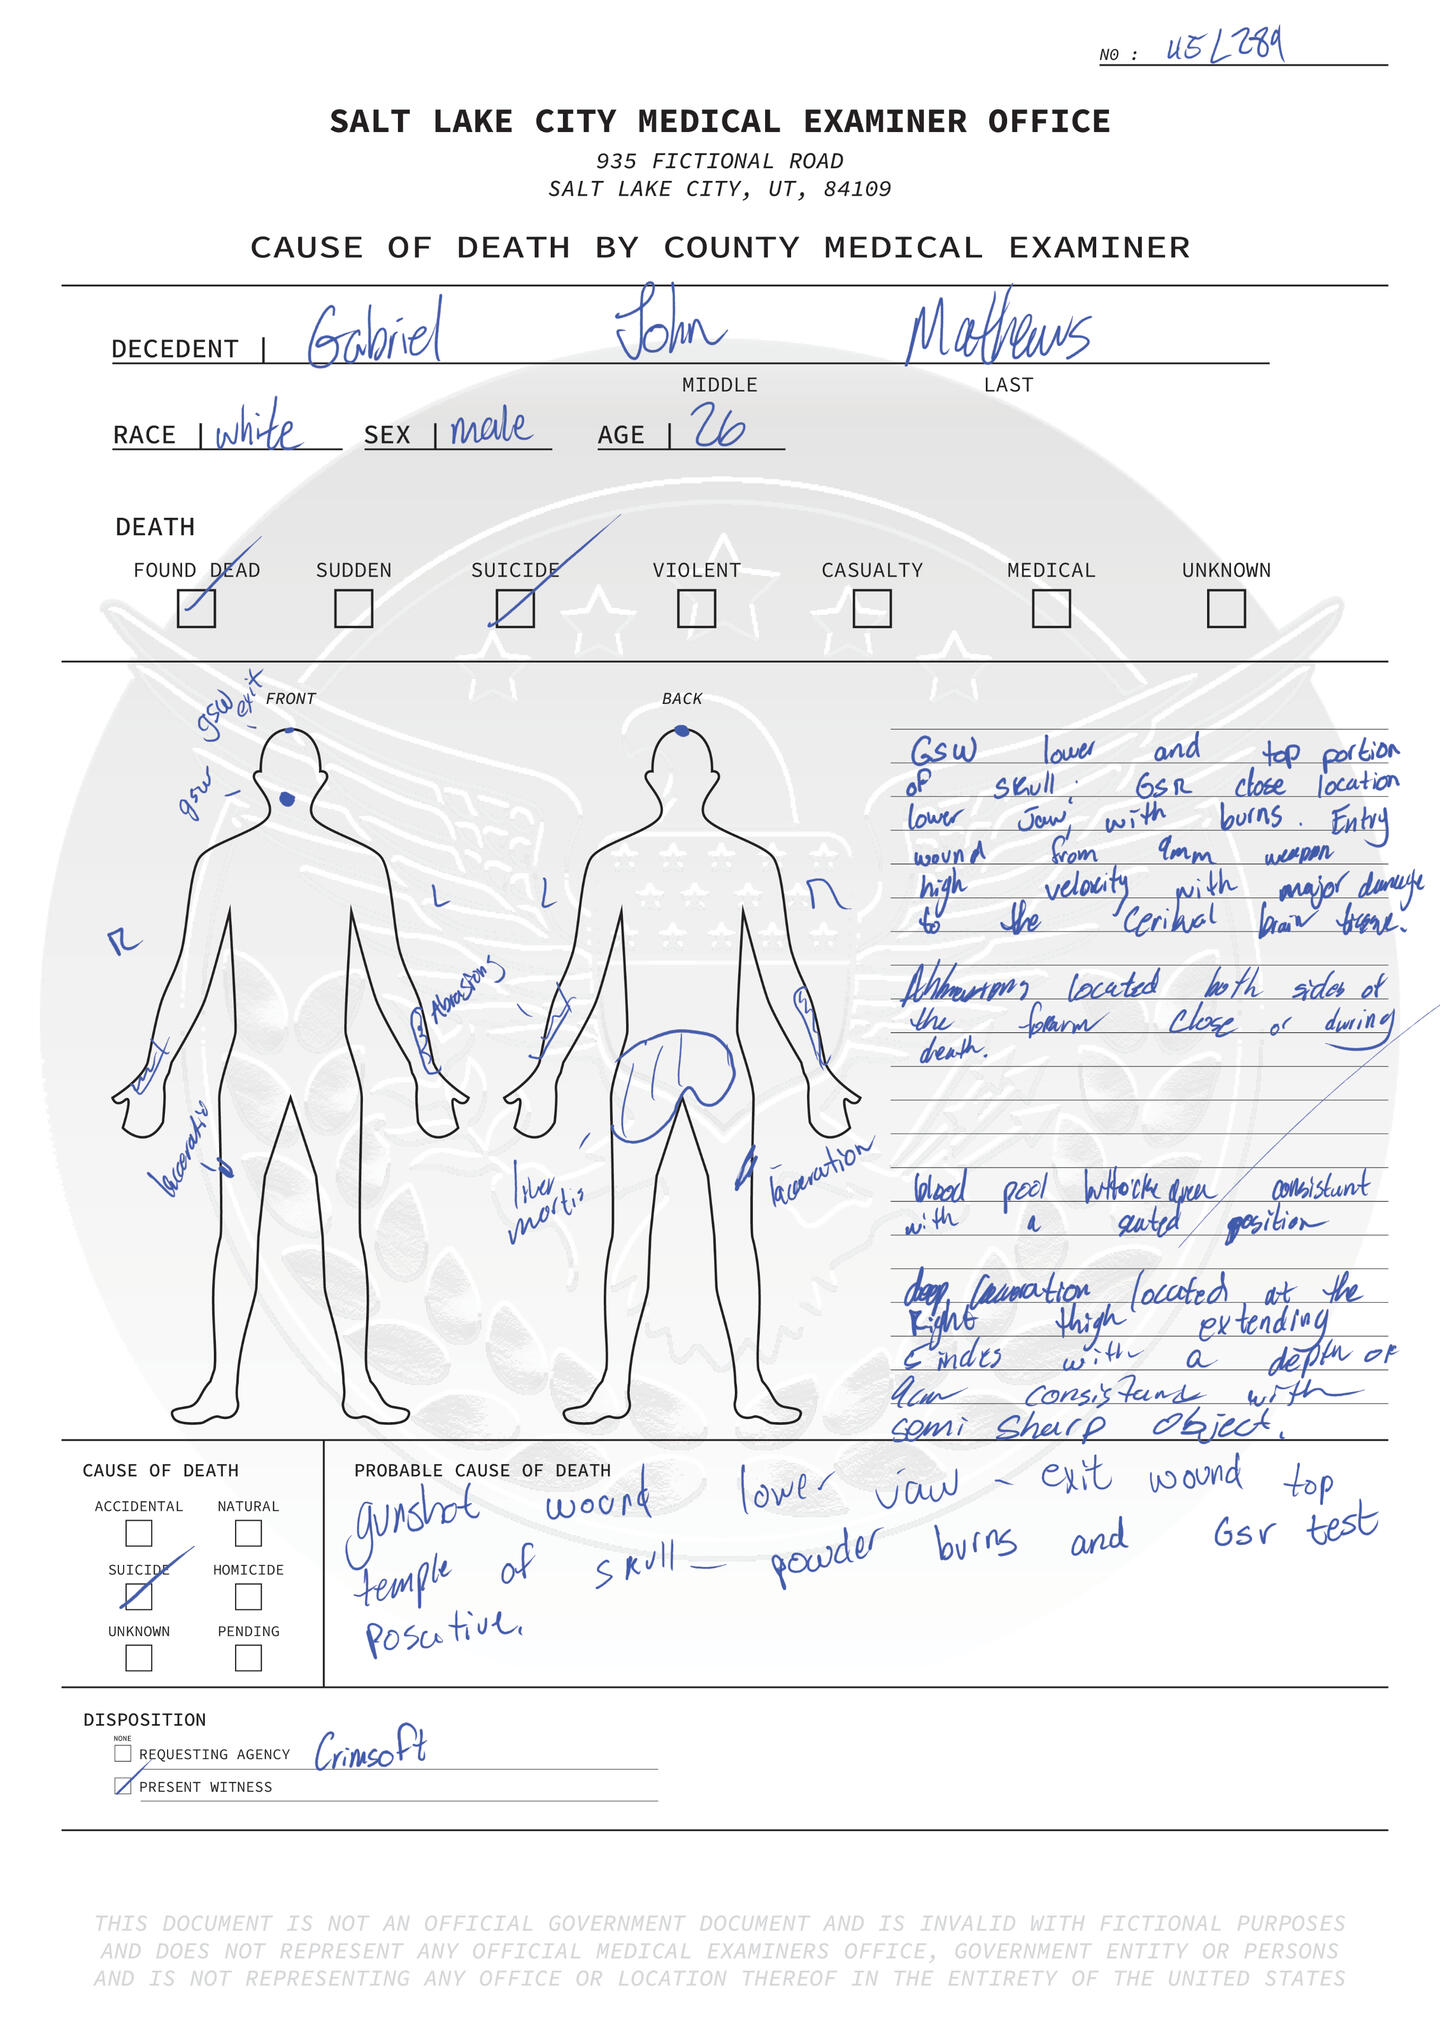 NO : UEL289
SALT LAKE CITY MEDICAL EXAMINER OFFICE
935 FICTIONAL ROAD
SALT LAKE CITY, UT, 84109
CAUSE OF DEATH BY COUNTY MEDICAL EXAMINER
DECEDENT | Gabriel John Mathews
MIDDLE LAST
RACE | white SEX | male AGE | 26
DEATH
FOUND DEAD SUDDEN SUICIDE VIOLENT CASUALTY MEDICAL UNKNOWN
FRONT
BACK
gsw exit
gsw
R
L
L
R
Abrasions
laceratio
liver
mortis
laceration
GSW lower and top portion
of skull. GSR close location
lower Jaw, with burns. Entry
wound from 9mm weapon
high velocity with major damage
to the brain
located both sides of
the close or during
death.
blood pool consistant
with a seated position
deep located at the
Right thigh extending
5 with a depth of
with
semi sharp object.
CAUSE OF DEATH
ACCIDENTAL NATURAL
SUICIDE HOMICIDE
UNKNOWN PENDING
PROBABLE CAUSE OF DEATH
gunshot wound lower jaw - exit wound top
temple of skull - powder burns and Gsr test
DISPOSITION
NONE
REQUESTING AGENCY Crimsoft
PRESENT WITNESS
THIS DOCUMENT IS NOT AN OFFICIAL GOVERNMENT DOCUMENT AND IS INVALID WITH FICTIONAL PURPOSES
AND DOES NOT REPRESENT ANY OFFICIAL MEDICAL EXAMINERS OFFICE, GOVERNMENT ENTITY OR PERSONS
AND IS NOT REPRESENTING ANY OFFICE OR LOCATION THEREOF IN THE ENTIRETY OF THE UNITED STATES